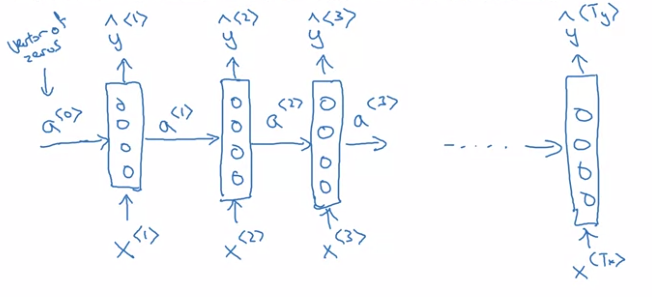 vector of
zeros
ŷ<1> ŷ<2> ŷ<3> ŷ<Ty>
a<0> a<1> a<2> a<3> .....
x<1> x<2> x<3> x<Tx>